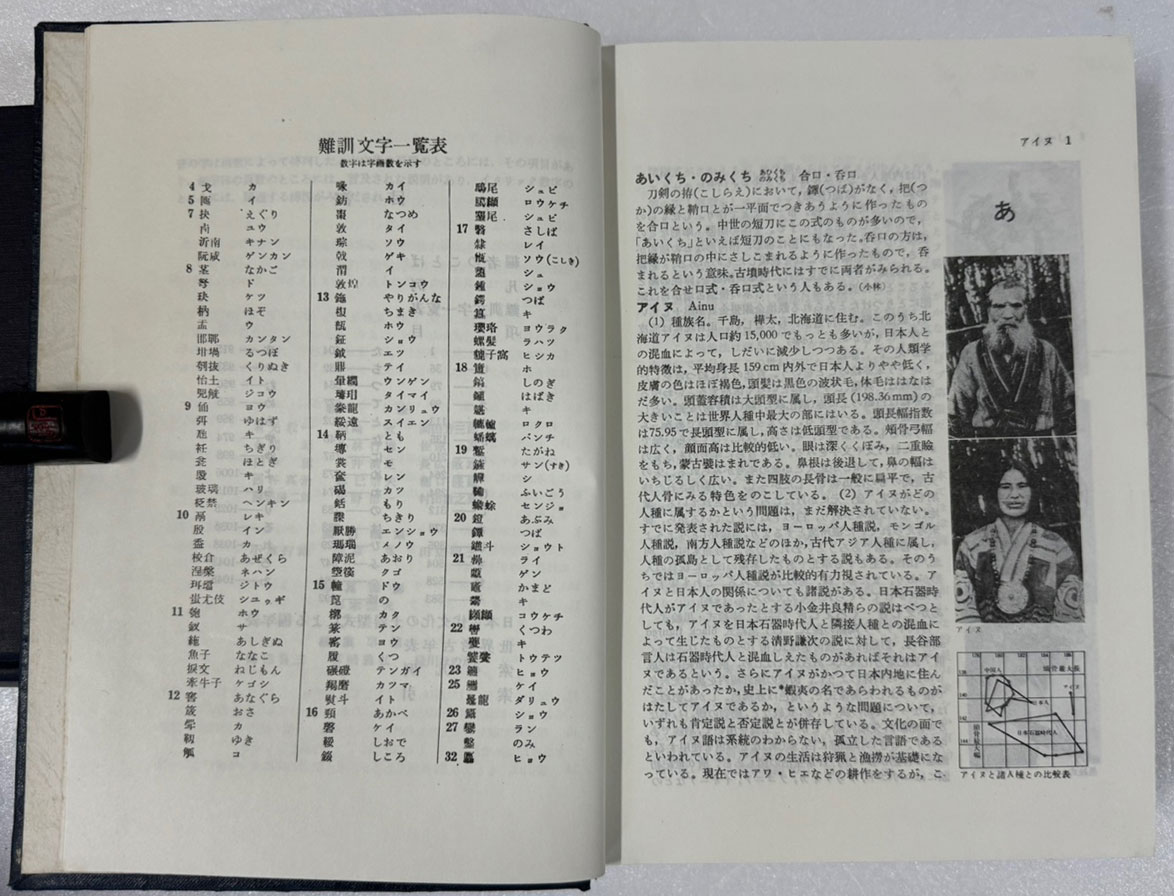 難訓文字一覧表
数字は字画数を示す
4 戈 カ
5 匜 イ
7 抉 えぐり
卣 ユウ
沂南 キナン
阮咸 ゲンカン
8 茎 なかご
弩 ド
玦 ケツ
枘 ほぞ
盂 ウ
邯鄲 カンタン
坩堝 るつぼ
刳抜 くりぬき
怡土 イト
兕觥 ジコウ
9 俑 ヨウ
弭 ゆはず
キ
衽 ちぎり
瓮 ほとぎ
キ
玻璃 ハリ
ヘンキン
10 鬲 レキ
殷 イン
盉 カ
校倉 あぜくら
涅槃 ネハン
珥璫 ジトウ
蚩尤伎 シユゥギ
11 ホウ
釵 サ
絁 あしぎぬ
魚子 ななこ
捩文 ねじもん
牽牛子 ケゴシ
12 窖 あなぐら
筬 おさ
斝 カ
靫 ゆき
觚 コ
カイ
ホウ
棗 なつめ
敦 タイ
琮 ソウ
戟 ゲキ
渭 イ
敦煌 トンコウ
13 鉇 やりがんな
ちまき
ホウ
鉦 ショウ
鉞 エツ
鼎 テイ
暈繝 ウンゲン
瑇瑁 タイマイ
豢龍 カンリュウ
綏遠 スイエン
14 鞆 とも
塼 セン
裳 モ
奩 レン
碣 カツ
銛 もり
ちきり
厭勝 エンショウ
瑪瑙 メノウ
障泥 あおり
箜篌 クゴ
15 幢 ドウ
箆 の
槨 カク
篆 テン
窯 ヨウ
履 くつ
碾磑 テンガイ
羯磨 カツマ
熨斗 イト
16 頸 あかべ
磬 ケイ
しおで
錣 しころ
鴟尾 シュビ
ロウケチ
シュビ
17 翳 さしば
隷 レイ
甑 ソウ(こしき)
シュ
鍾 ショウ
鍔 つば
簋 キ
瓔珞 ヨウラク
螺髪 ラハツ
貔子窩 ヒシカ
18 簠 ホ
鎬 しのぎ
はばき
キ
轆轤 ロクロ
蟠螭 バンチ
19 鏨 たがね
サン(すき)
觶 シ
ふいごう
蟾蜍 センジョ
20 鐙 あぶみ
鐔 つば
鐎斗 ショウト
21 罍 ライ
甗 ゲン
竈 かまど
キ
纐纈 コウケチ
22 轡 くつわ
夔 キ
饕餮 トウテツ
23 鑣 ヒョウ
25 ケイ
鼉龍 ダリュウ
26 ショウ
27 鑾 ラン
鑿 のみ
32 ヒョウ
アイヌ 1
あ
あいくち・のみくち あひくち のみくち 合口・呑口
刀剣の拵(こしらえ)において，鐔(つば)がなく，把(つ
か)の縁と鞘口とが一平面でつきあうように作ったもの
を合口という。中世の短刀にこの式のものが多いので，
「あいくち」といえば短刀のことにもなった。呑口の方は，
把縁が鞘口の中にさしこまれるように作ったもので，呑
まれるという意味。古墳時代にはすでに両者がみられる。
これを合せ口式・呑口式という人もある。(小林)
アイヌ Ainu
(1) 種族名。千島，樺太，北海道に住む。このうち北
海道アイヌは人口約15,000でもっとも多いが，日本人と
の混血によって，しだいに減少しつつある。その人類学
的特徴は，平均身長159cm内外で日本人よりやや低く，
皮膚の色はほぼ褐色，頭髪は黒色の波状毛，体毛ははなは
だ多い。頭蓋容積は大頭型に属し，頭長(198.36mm)の
大きいことは世界人種中最大の部にはいる。頭長幅指数
は75.95で長頭型に属し，高さは低頭型である。頬骨弓幅
は広く，顔面高は比較的低い。眼は深くくぼみ，二重瞼
をもち，蒙古襞はまれである。鼻根は後退して，鼻の幅は
いちじるしく広い。また四肢の長骨は一般に扁平で，古
代人骨にみる特色をのこしている。(2) アイヌがどの
人種に属するかという問題は，まだ解決されていない。
すでに発表された説には，ヨーロッパ人種説，モンゴル
人種説，南方人種説などのほか，古代アジア人種に属し，
人種の孤島として残存したものとする説もある。そのう
ちではヨーロッパ人種説が比較的有力視されている。ア
イヌと日本人の関係についても諸説がある。日本石器時
代人がアイヌであったとする小金井良精らの説はべつと
しても，アイヌを日本石器時代人と隣接人種との混血に
よって生じたものとする清野謙次の説に対して，長谷部
言人は石器時代人と混血しえたものがあればそれはアイ
ヌであるという。さらにアイヌがかつて日本内地に住ん
だことがあったか，史上に*蝦夷の名であらわれるものが
はたしてアイヌであるか，というような問題について，
いずれも肯定説と否定説とが併存している。文化の面で
も，アイヌ語は系統のわからない，孤立した言語である
といわれている。アイヌの生活は狩猟と漁撈が基礎にな
っている。現在ではアワ・ヒエなどの耕作をするが，こ
アイヌ
中国人
頭骨最大長
アイヌ
日本人
日本石器時代人
頭骨最大幅
アイヌと諸人種との比較表